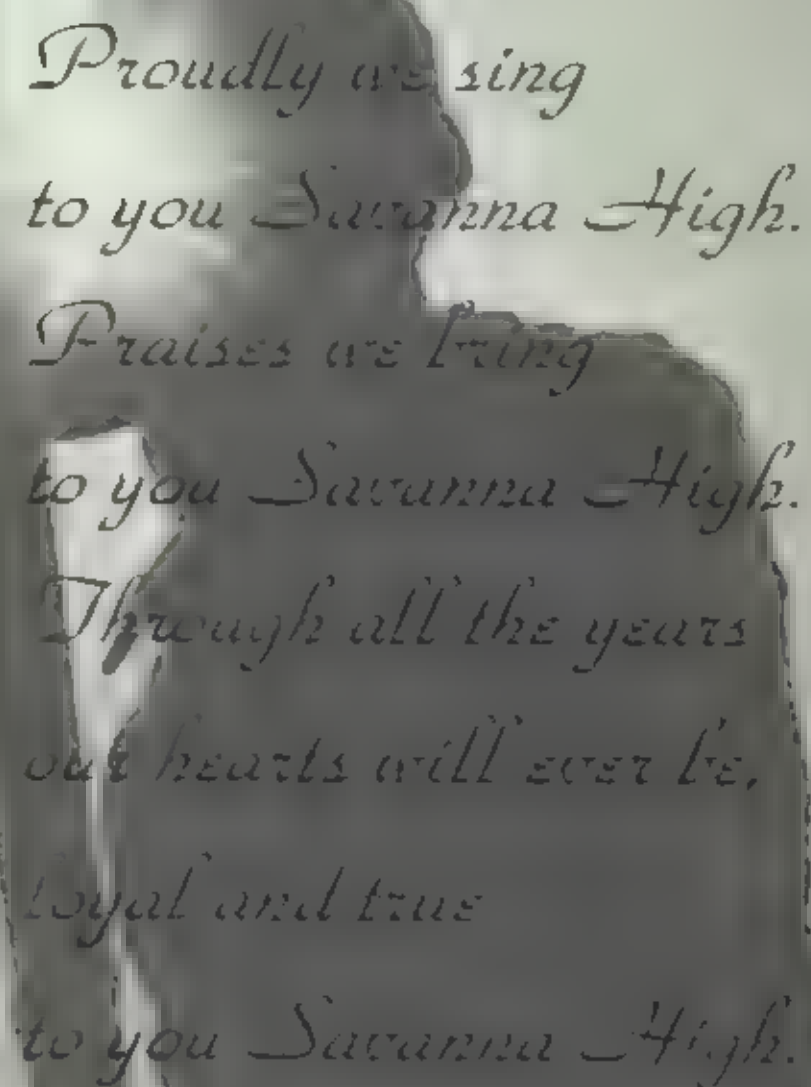 Proudly we sing
to you Savanna High.
Praises we bring
to you Savanna High.
Through all the years
our hearts will ever be,
loyal and true
to you Savanna High.